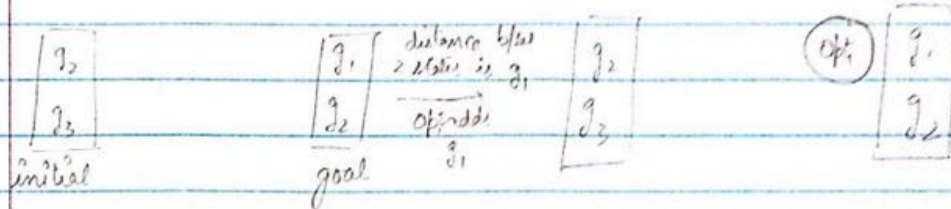 g2
g3
initial
g1
g2
goal
distance b/w
2 states is g1
op. adds
g1
g2
g3
opt1
g1
g2